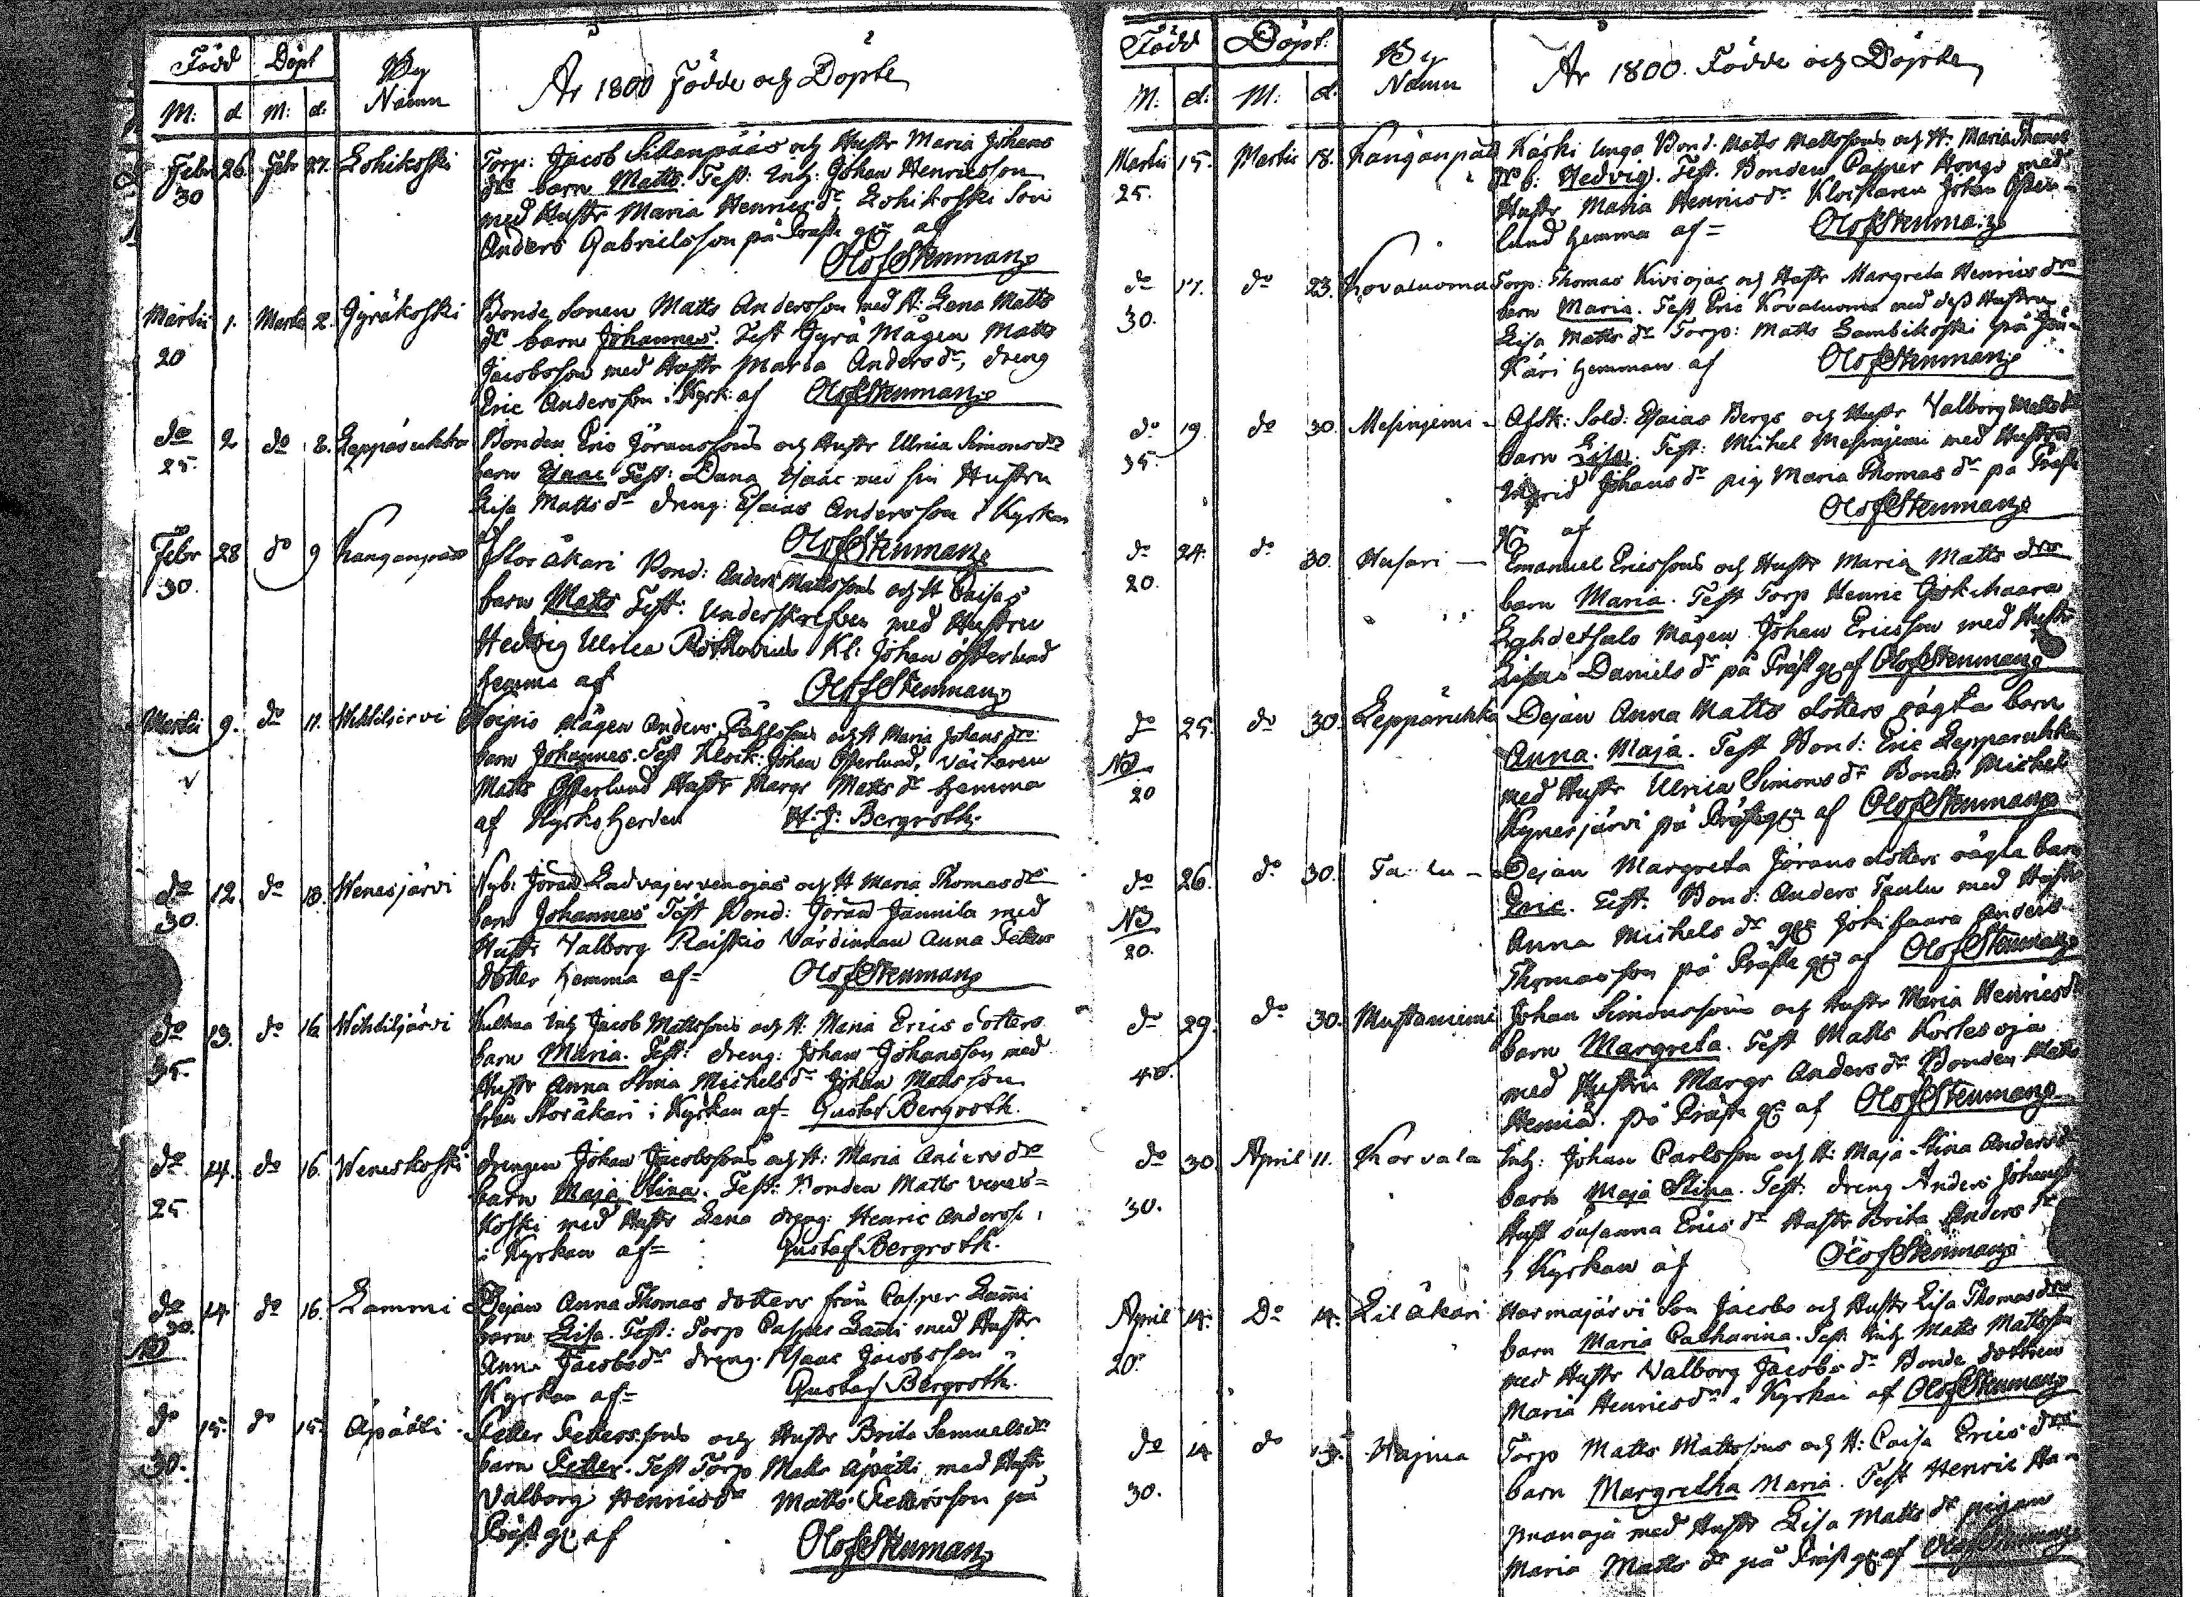 Född Döpt By Namn År 1800 Födde och Döpte
M: d M: d:
Febr 26. Febr 27. Lohikoski Torp: Jacob Sillanpääs och Hustr Maria Johans
30 drs barn Matts. Test: Inh: Johan Henricsson
med Hustr Maria Henricsdr Lohikoski Son
Anders Gabrielsson på Prästg af
Olof Stenman
Martii 1. Martii 2. Jyräkoski Bonde Sonen Matts Andersson med H: Lena Matts
20 dr barn Johannes. Test Jyrä Mågen Matts
Jacobsson med Hustr Maria Andersdr, dreng
Eric Andersson i Kyrk: af Olof Stenman
do 2 do 2. Leppäruhka Bonden Eric Jöranssons och Hustr Ulrica Simonsdrs
25. barn Isaac Test: Dana Isaac med sin Hustru
Lisa Mattsdr dreng: Esaias Andersson i Kyrkan
af Olof Stenman
Febr 28 do 9 Kanganpää Storåkari Bond: Anders Mattssons och H Caisas
30. barn Matts Test: Underskrefven med Hustru
Hedvig Ulrica Kl: Johan Österlund
hemma af Olof Stenman
Martii 9. do 11. Mågen Anders och H Maria Johans drs
barn Johannes. Test Klock: Johan Österlund,
Matts Österlund Hustr Margr Mattsdr hemma
af Kyrkoherden H: J: Bergroth.
do 12. do 13. Wenesjärvi Nyb: Jöran och H Maria Thomas drs
30. barn Johannes Test Bond: Jöran Jannila med
Hustr Valborg Raiskio Värdinnan Anna Petters
dotter hemma af= Olof Stenman
do 13. do 16 Inh Jacob Mattssons och H: Maria Erics dotters
35. barn Maria. Test: dreng: Johan Johansson med
Hustr Anna Stina Michelsdr Johan Matsson
från Storåkari i Kyrkan af= Gustaf Bergroth.
do 14. do 16. Weneskoski drengen Johan Jacobssons och H: Maria Anders drs
25 barn Maja Stina. Test: Bonden Matts Venes=
koski med Hustr Lena dreng: Henric Anderss.
i Kyrkan af= Gustaf Bergroth.
do 14. do 16. Lammi Dejan Anna Thomas dotters från Casper Lam̄i
30. barn Lisa. Test: Torp Casper Lam̄i med Hustr
NB Anna Jacobsdr dreng. Isaac Jacobsson i
Kyrkan af= Gustaf Bergroth.
do 15. do 15. Äpätti Petter Petterssons och Hustr Brita Samuelsdrs
30. barn Petter. Test Torp Matts Äpätti med Hustr
Valborg Henricsdr Matts Pettersson på
Prästg af
Olof Stenman
Född Döpt: By Namn År 1800. Födde och Döpte
M: d: M: d.
Martii 15. Martii 18. Kanganpää Käski unga Bond. Matts Mattssons och H: Maria
25. dr b: Hedvig. Test. Bonden Casper Hongo med
Hustr Maria Henricsdr Klockaren Johan Öster=
lund hemma af= Olof Stenman
do 17. do 23. Kovaluoma Torp: Thomas Kiviojas och Hustr Margreta Henrics drs
30. barn Maria. Test Eric Kovaluoma med dess Hustru
Lisa Mattsdr Torp: Matts Lambikoski på
Käri hemman af Olof Stenman
do 19. do 30. Mesinjemi Afsk: Sold: Esaias Bergs och Hustr Valborg
35. barn Lisa. Test: Michel Mesinjemi med Hustru
Ingrid Johansdr pig Maria Thomasdr på Präst
g af Olof Stenman
do 24. do 30. Husari Emanuel Ericssons och Hustr Maria Matts drs
20. barn Maria. Test Torp Henric
Mågen Johan Ericsson med Hustr
Lisa Danielsdr på Prästg af Olof Stenman
do 25. do 30. Leppäruhka Dejan Anna Matts dotters oägta barn
NB Anna. Maja. Test Bond: Eric Lepparuhka
20 med Hustr Ulrica Simonsdr Bond: Michel
Kynesjärvi på Prästeg af Olof Stenman
do 26. do 30. Dejan Margreta Jörans dotters oägta barn
NB Eric. Test. Bond: Anders Taulu med Hustr
20. Anna Michelsdr Anders
Thomasson på Präste g af Olof Stenman
do 29. do 30. Mustaniemi Johan Simonssons och Hustr Maria Henricsdr
40. barn Margreta. Test Matts Kortesoja
med Hustru Margr Andersdr Bonden Matts
på Präst g af Olof Stenman
do 30. April 11. Korvala Inh: Johan Carlsson och H: Maja Stina Andersdr
30. barn Maja Stina. Test: dreng Anders
Hust Susanna Ericsdr Hustr Brita Andersdr
i Kyrkan af Olof Stenman
April 14. Do 14. Lilåkari Harmajärvi Son Jacobs och Hustr Lisa Thomasdrs
20. barn Maria Catharina. Test: Inh Matts Mattsson
med Hustr Valborg Jacobsdr Bonde dottren
Maria Henricsdr i Kyrkan af Olof Stenman
do 14 do Torp Matts Mattssons och H: Caisa Erics drs
30. barn Margretha Maria. Test Henric Ha=
med Hustr Lisa Mattsdr pigan
Maria Mattsdr på Präst g af Olof Stenman